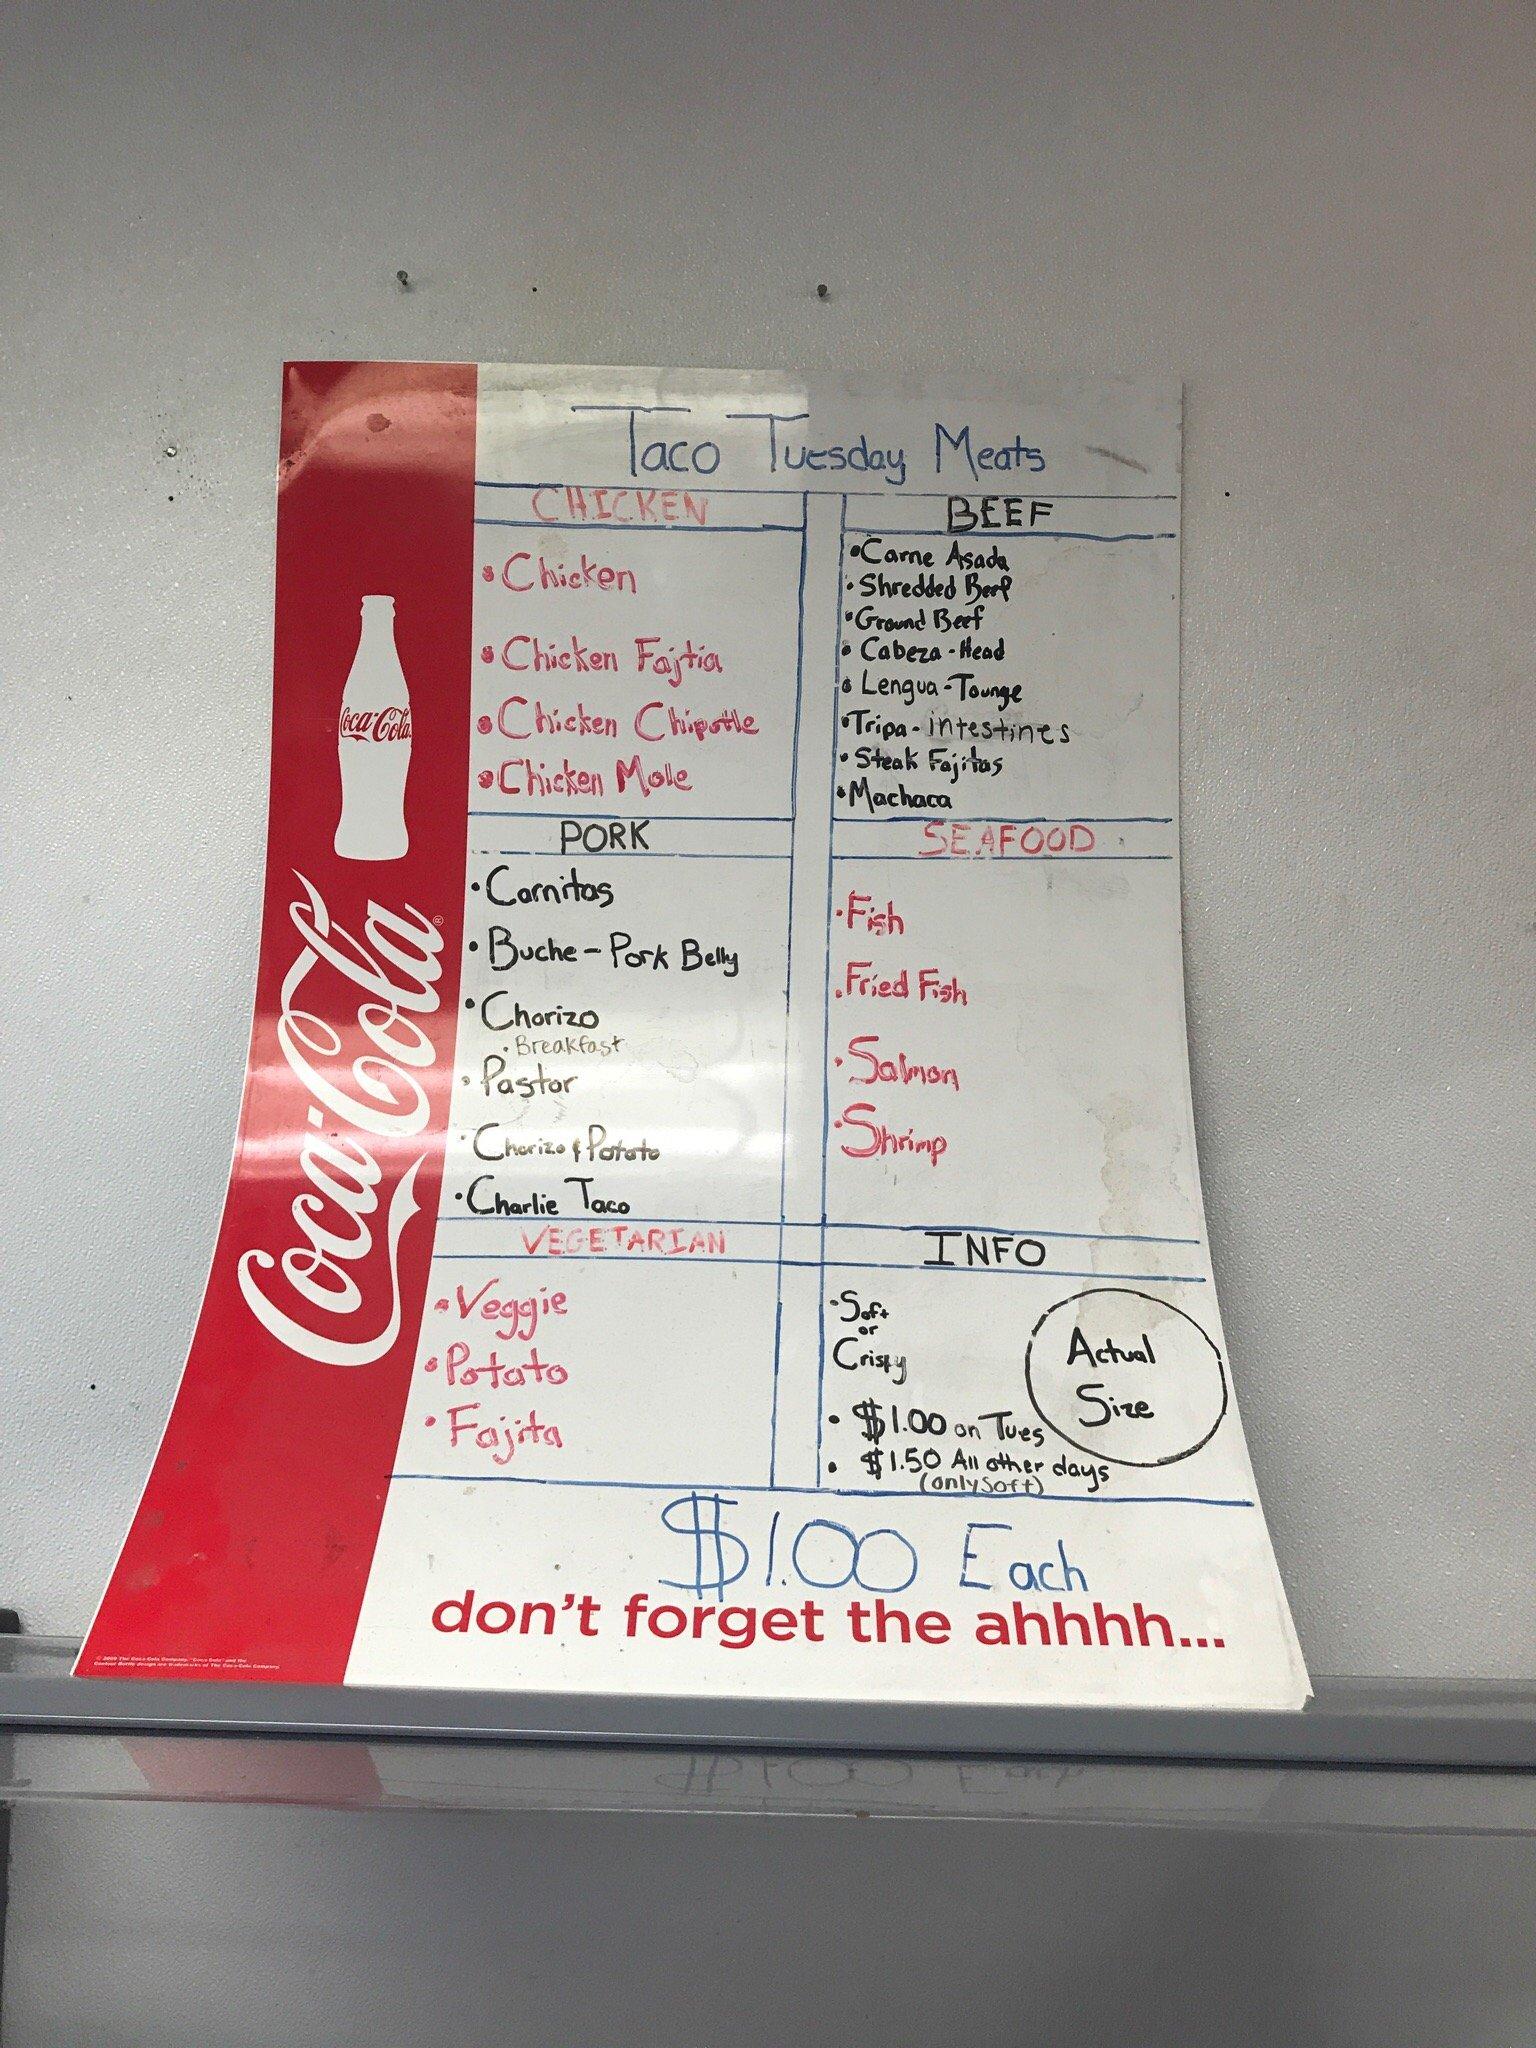 Taco Tuesday Meats
CHICKEN
• Chicken
• Chicken Fajtia
• Chicken Chipotle
• Chicken Mole
BEEF
• Carne Asada
• Shredded Beef
• Ground Beef
• Cabeza - Head
• Lengua - Tounge
• Tripa - intestines
• Steak Fajitas
• Machaca
PORK
• Carnitas
• Buche - Pork Belly
• Chorizo
• Breakfast
• Pastor
• Chorizo & Potato
• Charlie Taco
SEAFOOD
• Fish
• Fried Fish
• Salmon
• Shrimp
VEGETARIAN
• Veggie
• Potato
• Fajita
INFO
• Soft
or
Crispy
• $1.00 on Tues
• $1.50 All other days
(only soft)
Actual
Size
$1.00 Each
don't forget the ahhhh...
Coca-Cola
Coca-Cola®
© 2009 The Coca-Cola Company. "Coca-Cola" and the
Contour Bottle design are trademarks of The Coca-Cola Company.